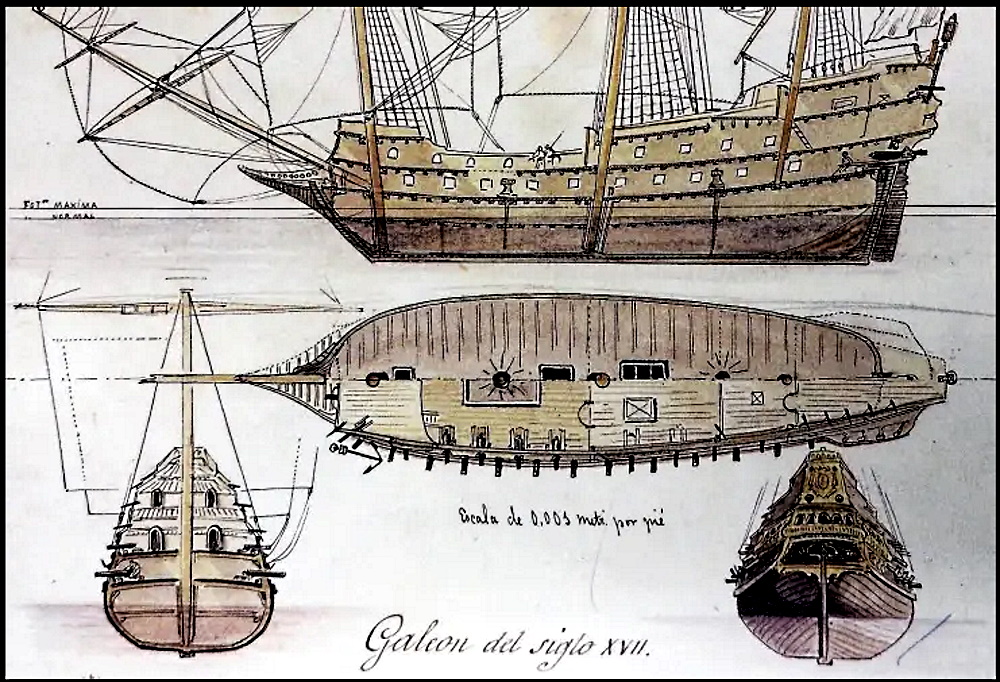 Estⁿ MAXIMA
" NORMAL
Escala de 0,003 metˢ por pié
Galeon del siglo XVII.